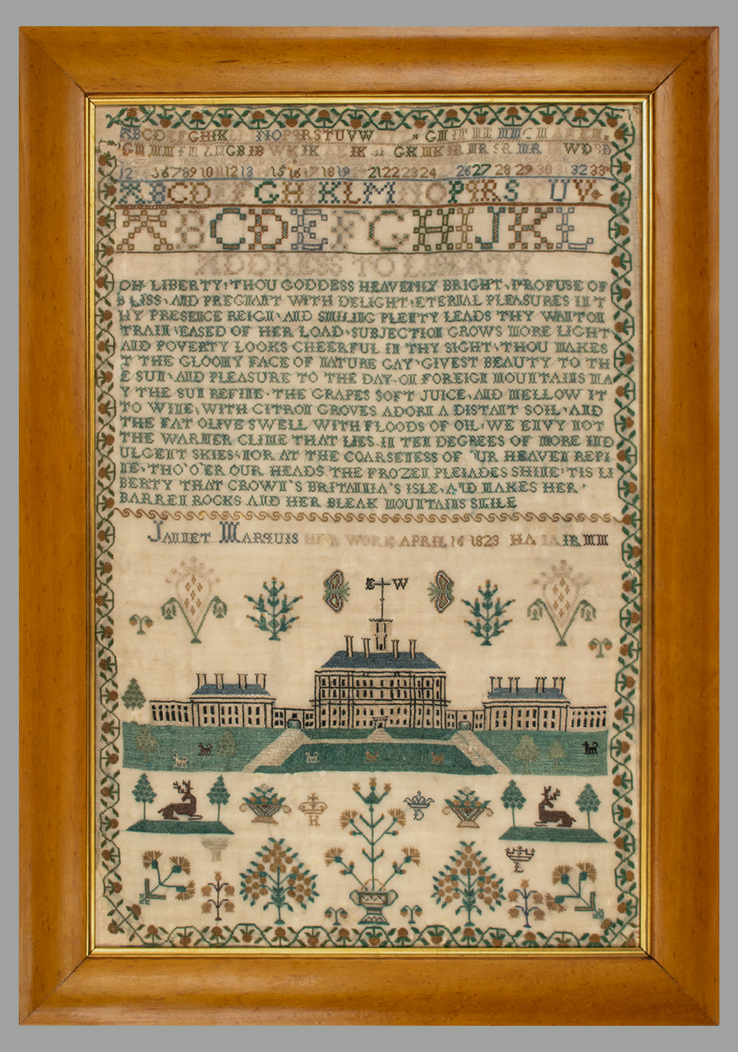 ABCD
GHIK
NOP
RSTUVW
12
6789 10 11 12 13
15 16 17 18 19 21 22 23 24 26 27 28 29 30 32 33
ABCD
GHIKLM
PQRS
UV
ABCDEFGHIJKL
ADDRESS TO LIBERTY
OH LIBERTY! THOU GODDESS HEAVENLY BRIGHT, PROFUSE OF
BLISS, AND PREGNANT WITH DELIGHT, ETERNAL PLEASURES IN T
HY PRESENCE REIGN, AND SMILING PLENTY LEADS THY WANTON
TRAIN, EASED OF HER LOAD, SUBJECTION GROWS MORE LIGHT,
AND POVERTY LOOKS CHEERFUL IN THY SIGHT, THOU MAKES
T THE GLOOMY FACE OF NATURE GAY, GIVEST BEAUTY TO TH
E SUN, AND PLEASURE TO THE DAY, ON FOREIGN MOUNTAINS MA
Y THE SUN REFINE, THE GRAPES SOFT JUICE, AND MELLOW IT
TO WINE, WITH CITRON GROVES ADORN A DISTANT SOIL, AND
THE FAT OLIVE SWELL WITH FLOODS OF OIL, WE ENVY NOT
THE WARMER CLIME THAT LIES IN TEN DEGREES OF MORE IND
ULGENT SKIES, NOR AT THE COARSENESS OF UR HEAVEN REPI
NE, THO' O'ER OUR HEADS THE FROZEN PLEIADES SHINE, TIS LI
BERTY THAT CROWN'S BRITANNIA'S ISLE, AND MAKES HER
BARREN ROCKS AND HER BLEAK MOUNTAINS SMILE
JANNET MARQUIS HER WORK APRIL 14 1823 HA IA IR MM
E W
H
D
E